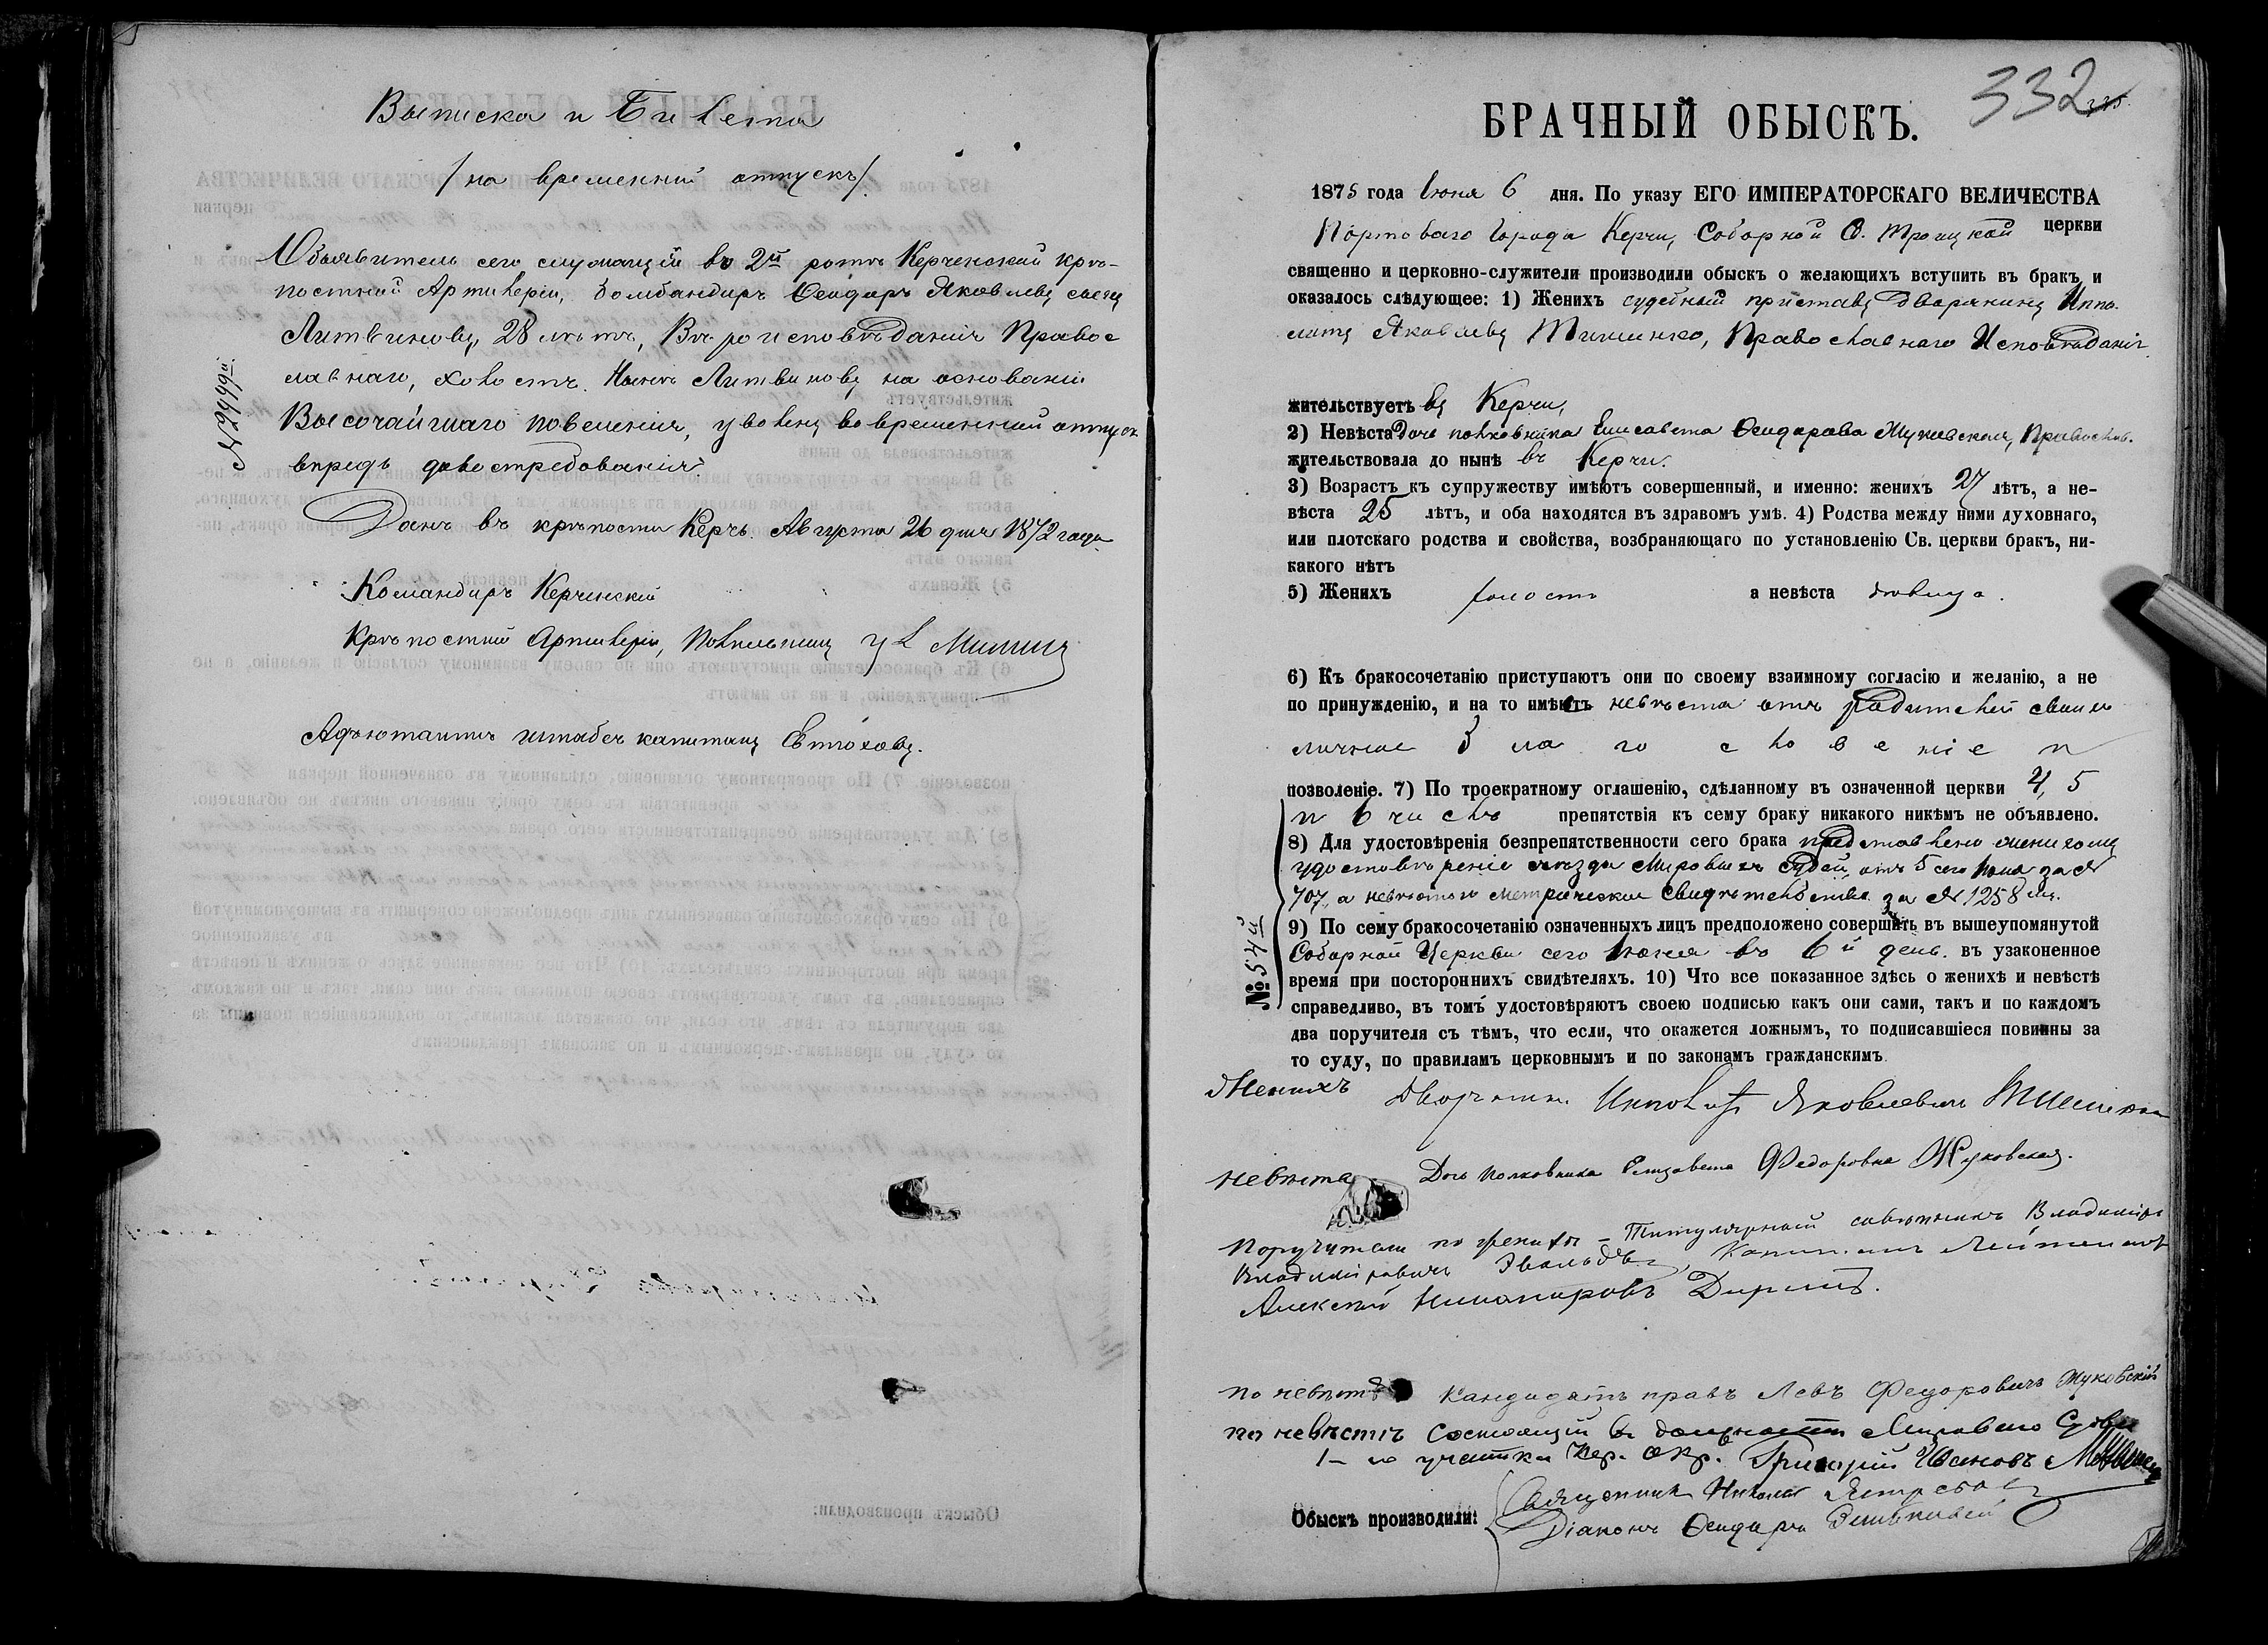 Выписка и Билета
/на временный отпускъ/
Объявитель сего служащій во 2й ротѣ Керченской крѣ-
постной Артилеріи, бомбандиръ Ѳеодоръ Яковлевъ сынъ
Литвиновъ, 28 лѣтъ, Вѣроисповѣданія Правос
лавнаго, холостъ. Нынѣ Литвиновъ на основаніи
Высочайшаго повеленія, уволенъ во временный отпускъ
впредь до востребованія
Данъ въ крѣпости Керчь. Августа 26 дня 1872 года
Командиръ Керченской
Крѣпостной Артилеріи, Полковникъ
Адъютантъ штабсъ капитанъ
№ 2449й.
332
БРАЧНЫЙ ОБЫСКЪ.
1875 года Іюня 6 дня. По указу ЕГО ИМПЕРАТОРСКАГО ВЕЛИЧЕСТВА
Портоваго Города Керчи, Соборной С. Троицкой церкви
священно и церковно-служители производили обыскъ о желающихъ вступить въ бракъ, и
оказалось слѣдующее: 1) Женихъ судебный приставъ Дворянинъ Иппо-
литъ Яковлевъ Тимченко, Православнаго Исповѣданія
жительствуетъ въ Керчи,
2) Невѣста Дочь полковника Елисавета Ѳеодорова Жуковская, Православ.
жительствовала до нынѣ въ Керчи.
3) Возрастъ къ супружеству имѣютъ совершенный, и именно: женихъ 27 лѣтъ, а не-
вѣста 25 лѣтъ, и оба находятся въ здравомъ умѣ. 4) Родства между ними духовнаго,
или плотскаго родства и свойства, возбраняющаго по установленію Св. церкви бракъ, ни-
какого нѣтъ
5) Женихъ холостъ а невѣста дѣвица.
6) Къ бракосочетанію приступаютъ они по своему взаимному согласію и желанію, а не
по принужденію, и на то имѣетъ невѣста отъ родителей своихъ
личное благословеніе и
позволеніе. 7) По троекратному оглашенію, сдѣланному въ означенной церкви 4, 5
и 6 числъ препятствія къ сему браку никакого никѣмъ не объявлено.
8) Для удостовѣренія безпрепятственности сего брака представлено женихомъ
удостовѣреніе съѣзда Мировыхъ Судей, отъ 5 сего Іюня за №
707, а невѣстою метрическое свидѣтельство за № 1258 мъ.
9) По сему бракосочетанію означенныхъ лицъ предположено совершить въ вышеупомянутой
Соборной Церкви сего Іюня въ 6й день. въ узаконенное
время при постороннихъ свидѣтеляхъ. 10) Что все показанное здѣсь о женихѣ и невѣстѣ
справедливо, въ томъ удостовѣряютъ своею подписью какъ они сами, такъ и по каждомъ
два поручителя съ тѣмъ, что если, что окажется ложнымъ, то подписавшіеся повинны за
то суду, по правиламъ церковнымъ и по законамъ гражданскимъ
№ 54й
Женихъ Дворянинъ Ипполитъ Яковлевичъ Тимченко
невѣста Дочь полковника Елизавета Федоровна Жуковская.
Поручители по женихѣ – Титулярный совѣтникъ Владиміръ
Владиміровичъ Эвальдъ, Капитанъ Лейтенантъ
Алексѣй
по невѣстѣ Кандидатъ правъ Левъ Федоровичъ Жуковскій
по невѣстѣ Состоящій въ должности Мироваго Судьи
1-го участка Кер. Окр. Григорій Ивановъ
Обыскъ производили: Священникъ Николай
Діаконъ Ѳеодоръ